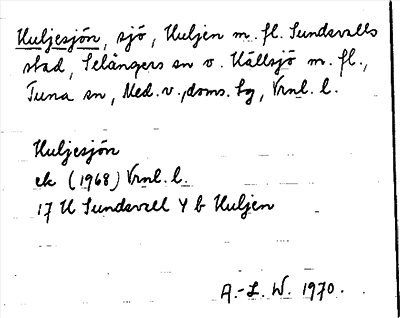 Huljesjön, sjö, Huljen m. fl. Sundsvalls
stad, Selångers sn o. Källsjö m. fl.,
Tuna sn, Med. v., doms. tg, Vrnl. l.
Huljesjön
ek (1968) Vrnl. l.
17 H Sundsvall Y b Huljen
A.-L. W. 1970.